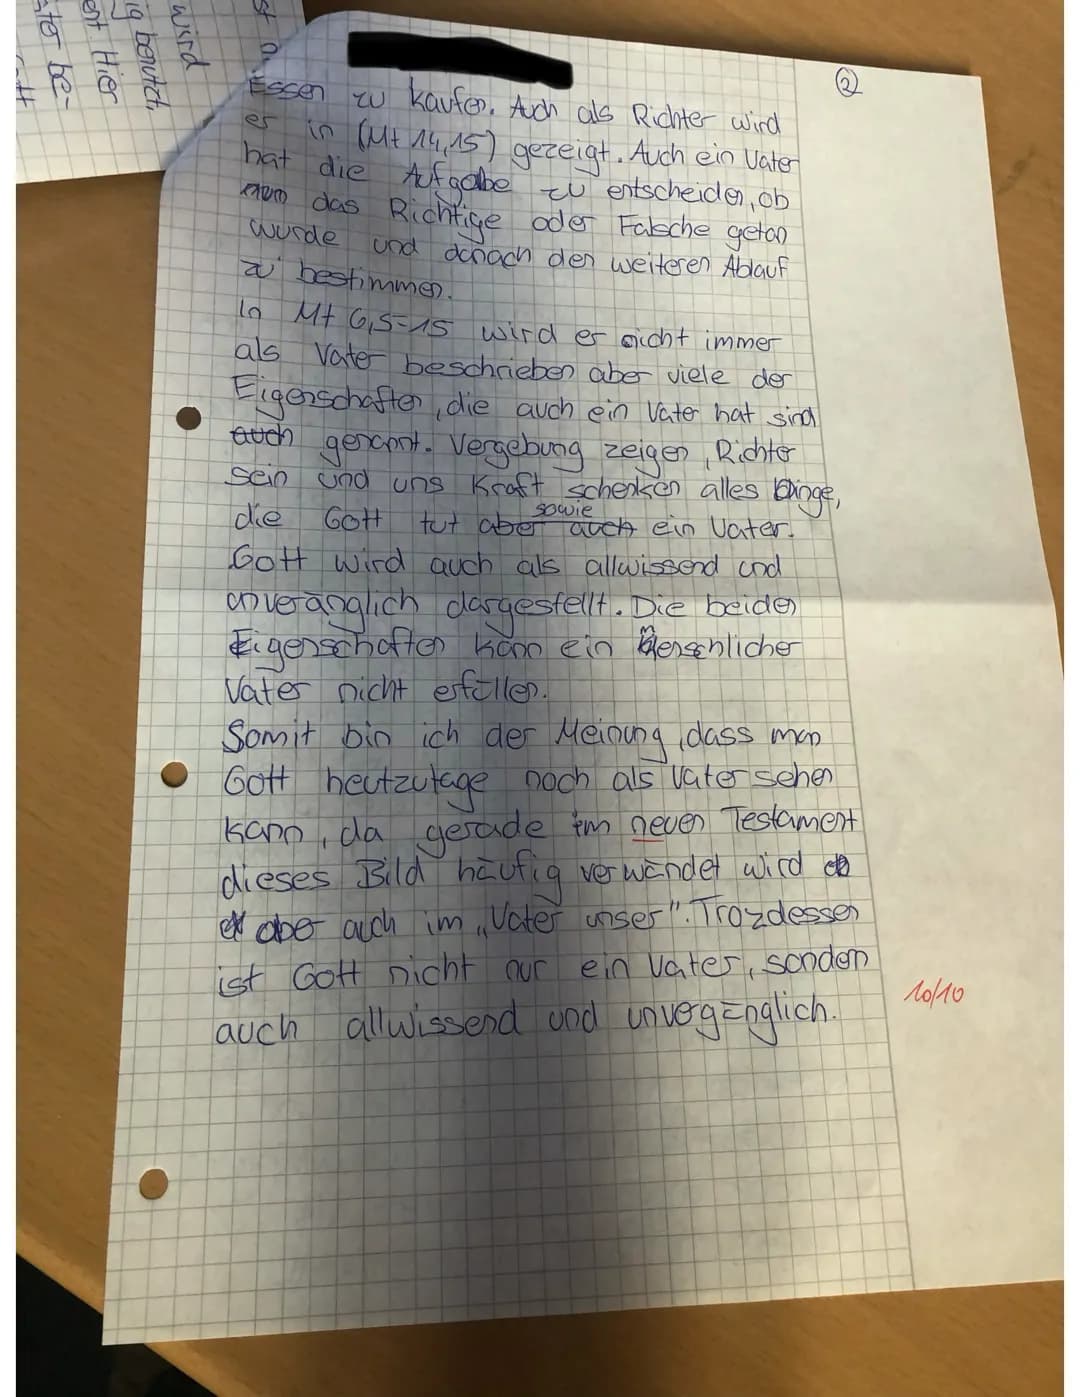 wird
ig benutzt.
ent Hier
ter be-
②
Essen zu kaufen. Auch als Richter wird
er in (Mt 14,15) gezeigt. Auch ein Vater
hat die Aufgabe zu entscheiden, ob
nun das Richtige oder Falsche getan
wurde und danach den weiteren Ablauf
zu bestimmen.
In Mt 6,5-15 wird er nicht immer
als Vater beschrieben aber viele der
Eigenschaften, die auch ein Vater hat sind
auch genannt. Vergebung zeigen, Richter
sein und uns Kraft schenken alles Dinge,
sowie
die Gott tut aber auch ein Vater.
Gott wird auch als allwissend und
unveränglich dargestellt. Die beiden
Eigenschaften kann ein menschlicher
Vater nicht erfüllen.
Somit bin ich der Meinung, dass man
Gott heutzutage noch als Vater sehen
kann, da gerade im neuen Testament
dieses Bild häufig verwendet wird
aber auch im „Vater unser". Trozdessen
ist Gott nicht nur ein Vater, sondern
auch allwissend und unvergänglich.
10/10